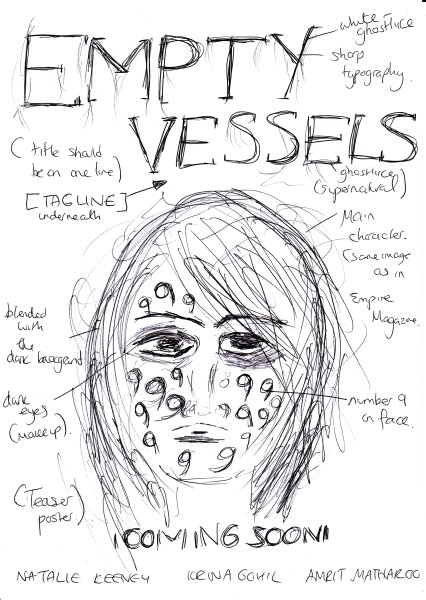 EMPTY
VESSELS
white -
ghostlike
sharp
typography.
( title should
be on one line)
[TAGLINE]
underneath
ghostlike
(supernatural)
Main
character.
(same image
as in
Empire
Magazine.
blended
with
the
dark background
dark
eyes
(makeup).
number 9
on face.
9 9 9
9 9 9
9 9 9
9 9
9 9 9
9 9
9 9
9 9
(Teaser
poster)
COMING SOON
NATALIE KEENEY KRINA GOHIL AMRIT MATHAROO.